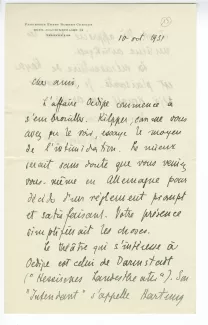 10 oct 1931
Cher ami,
L'affaire Œdipe commence à
s'embrouiller. Klipper, comme vous
avez pu le voir, essaye le moyen
de l'intimidation. Le mieux
serait sans doute que vous veniez
vous-même en Allemagne pour
décider d'un règlement prompt
et satisfaisant. Votre présence
simplifierait les choses.
Le théâtre qui s'intéresse à
Œdipe est celui de Darmstadt
("Hessisches Landestheater"). Son
"Intendant" s'appelle Hartung